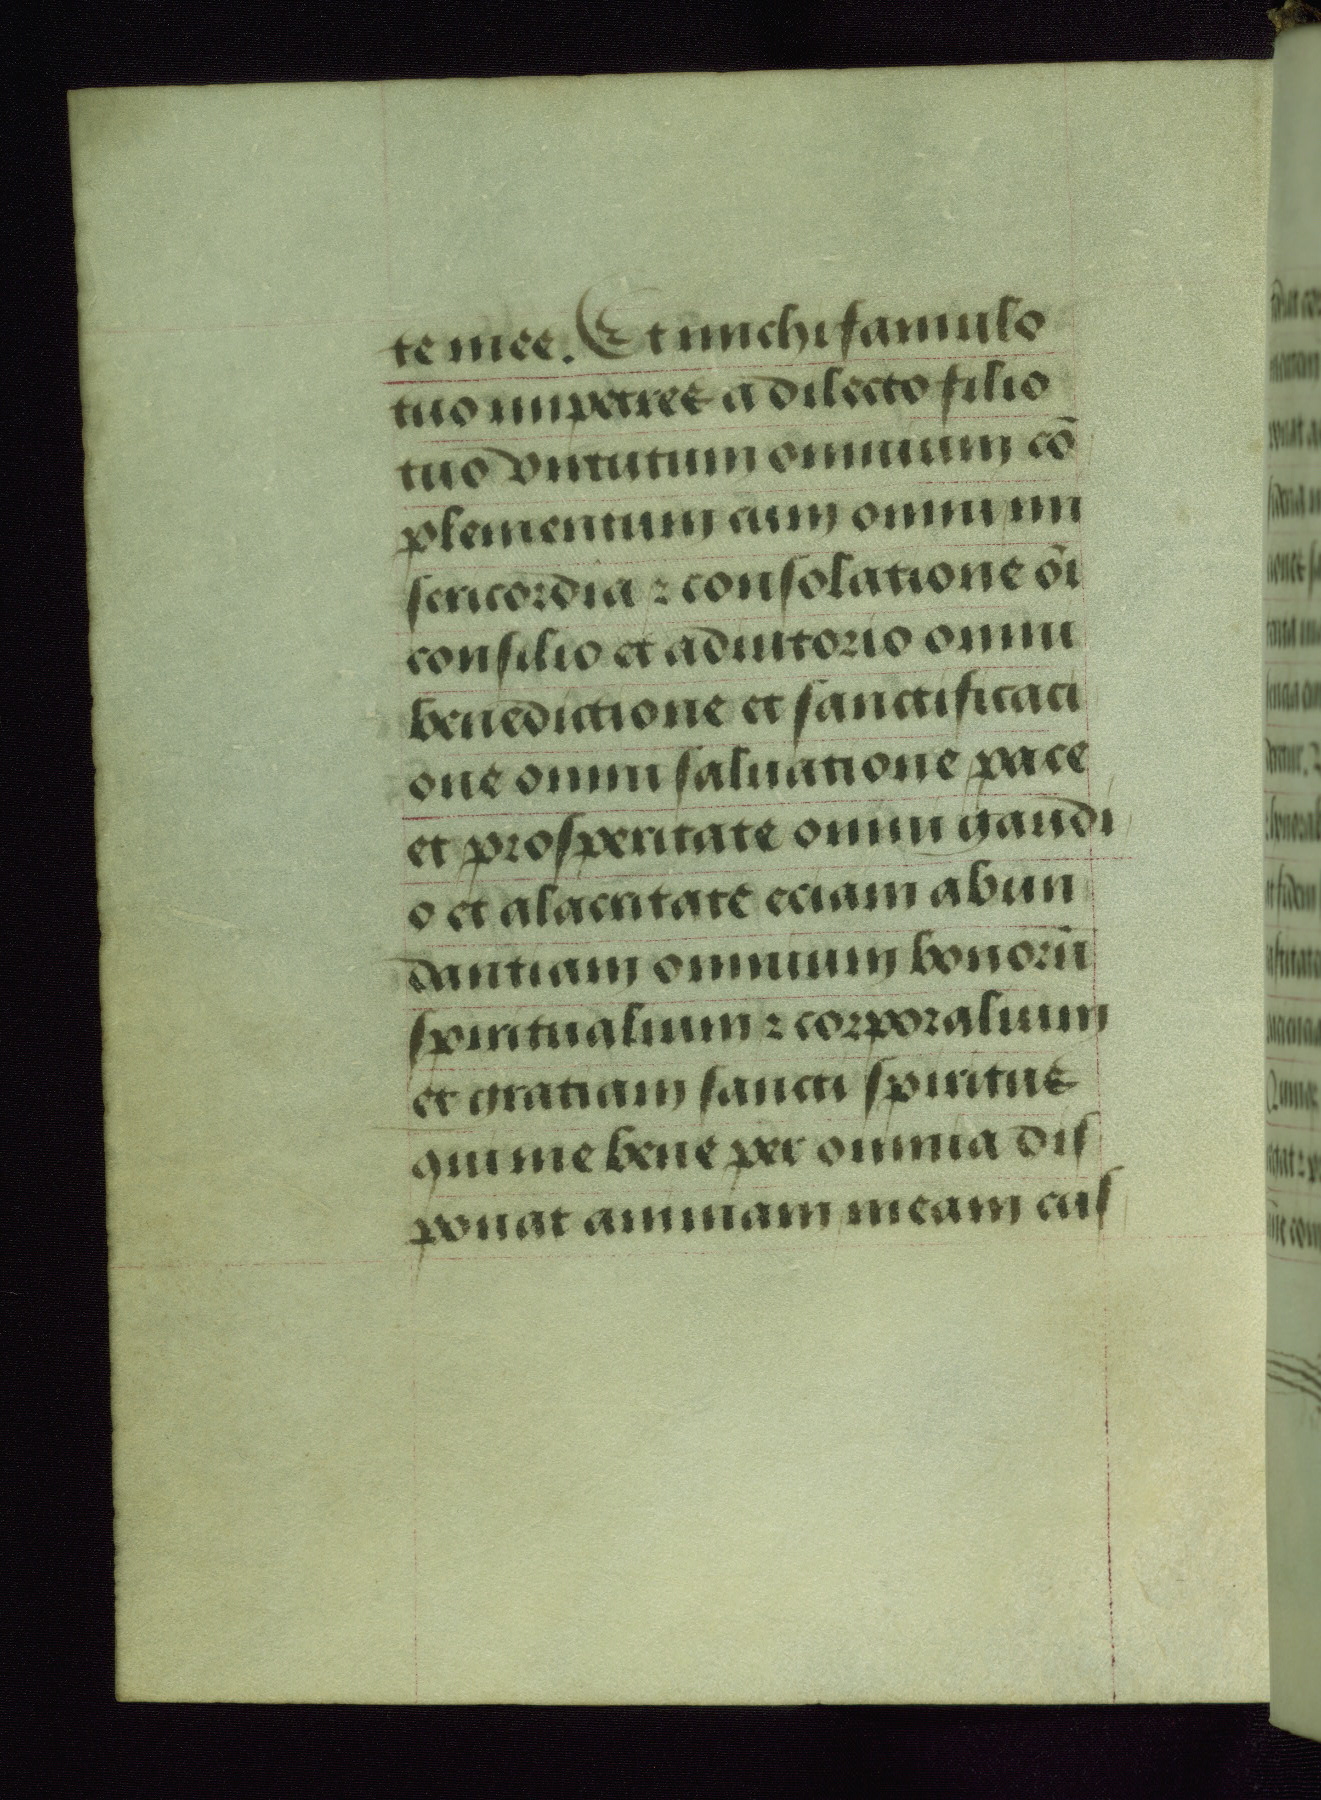 te mee. Et michi famulo
tuo impetret a dilecto filio
tuo virtutum omnium cō
plementum cum omni mi
sericordia ⁊ consolatione oī
consilio et adiutorio omni
benedictione et sanctificaci
one omni saluatione pace
et prosperitate omni gaudi
o et alacritate eciam abun
dantiam omnium bonorū
spiritualium ⁊ corporalium
et gratiam sancti spiritus
qui me bene per omnia dis
ponat animam meam cus